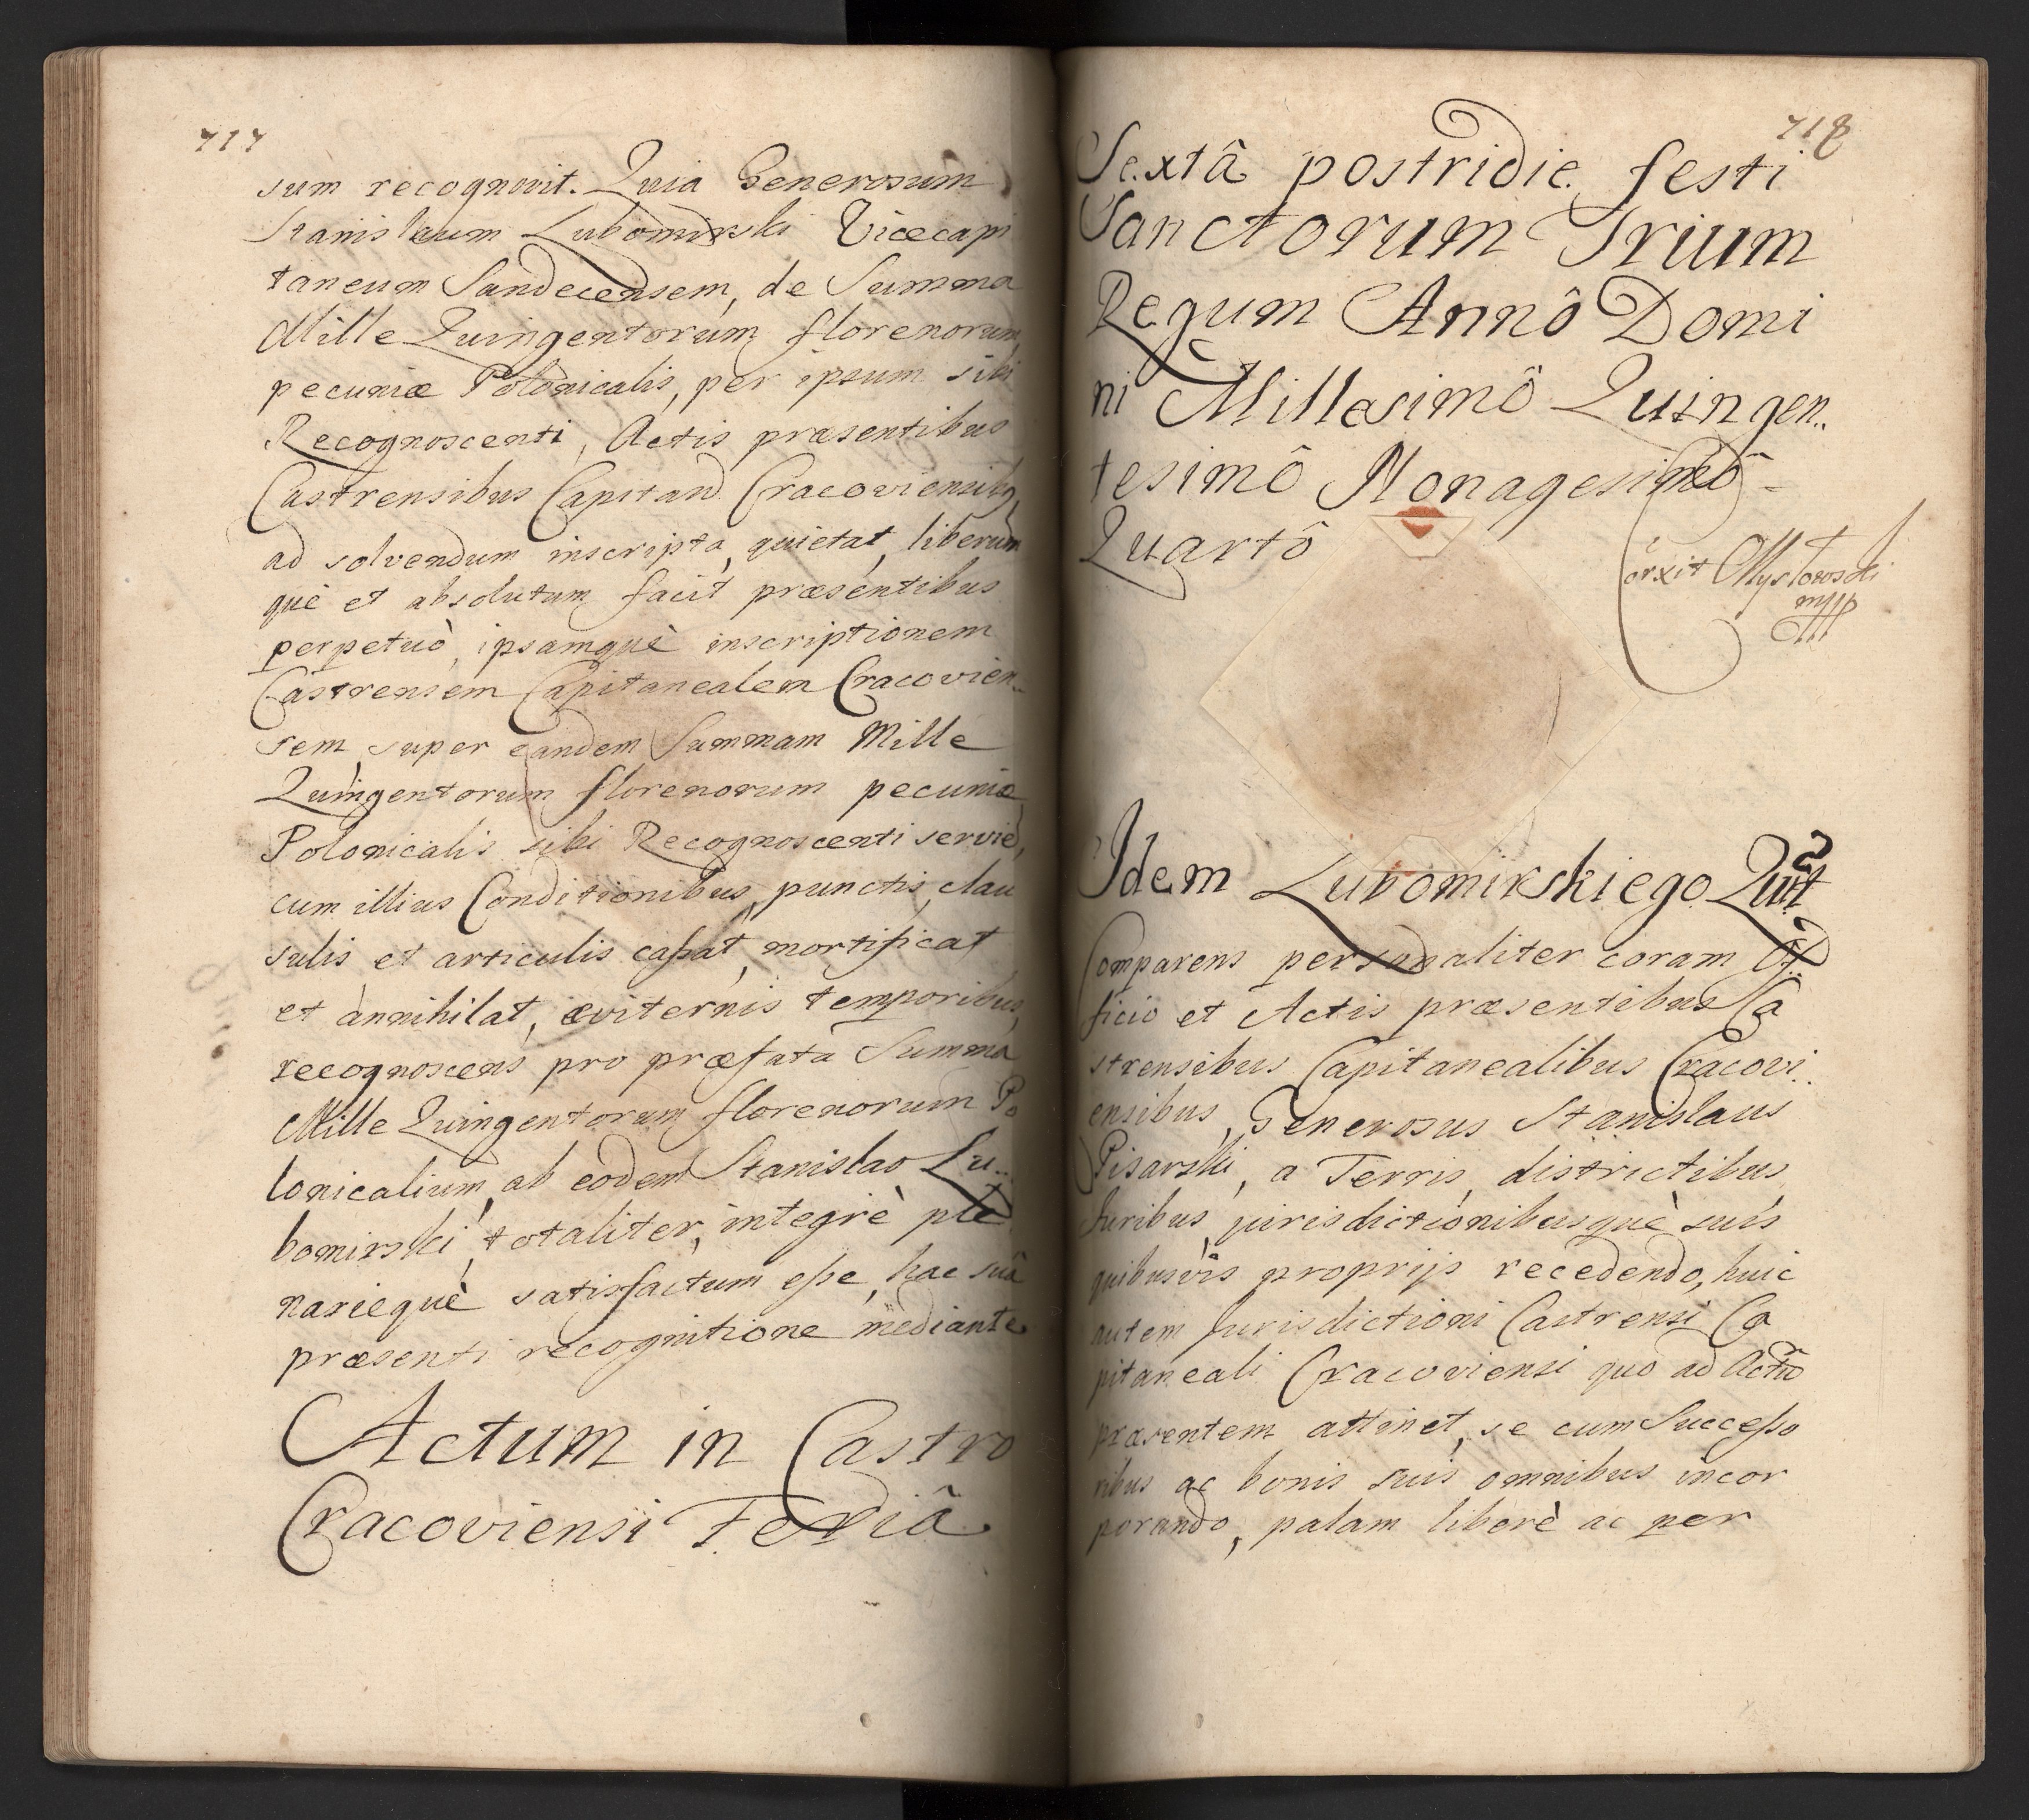 717
sum recognovit. Quia Generosum
Stanislaum Lubomirski Vicecapi
taneum Sandecensem, de Summa
Mille Quingentorum florenorum
pecuniæ Polonicalis, per ipsum sibi
Recognoscenti, Actis præsentibus
Castrensibus Capitan Cracoviensibq
ad solvendum inscripta, quietat, liberum
què et absolutum facit præsentibus
perpetuò, ipsamquè inscriptionem
Castrensem Capitanealem Cracovien..
sem, super eandem Summam Mille
Quingentorum florenorum pecuniæ
Polonicalis sibi Recognoscenti servien,
cum illius Conditionibus, punctis, clau
sulis et articulis cassat, mortificat
et annihilat, æviternis temporibus,
recognoscens pro præfata Summa
Mille Quingentorum florenorum Po
lonicalium, ab eodem Stanislao Lu..
bomirski, totaliter, integrè ple
narièquè satisfactum esse, hac suâ
præsenti recognitione mediante
Actum in Castro
Cracoviensi Feriâ
718
Sextâ postridie festi
Sanctorum Trium
Regum Annô Domi
ni Millesimô Quingen..
tesimô Nonagesimô
Quartô
Corxit
mpp
Idem Lubomirskiego Quit
Comparens personaliter coram Of
ficio et Actis præsentibus Ca
strensibus Capitanealibus Cracovi..
ensibus, Generosus Stanislaus
Pisarski, a Terris, districtibus,
Juribus, jurisdictionibusquè suis
quibusvis proprijs recedendo, huic
autem Jurisdictioni Castrensi Ca
pitaneali Cracoviensi quo ad Actũ
præsentem attinet, se cum Successo
ribus ac bonis suis omnibus incor
porando, palam liberè ac per